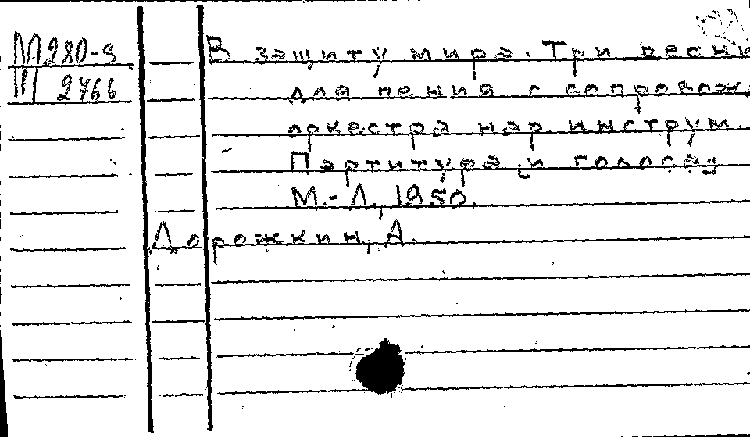 М280-9
Ш 2766
В защиту мира. Три песни
для пения с сопровож.
оркестра нар. инструм.
Партитура и голоса.
М.-Л., 1950.
Дорожкин, А.